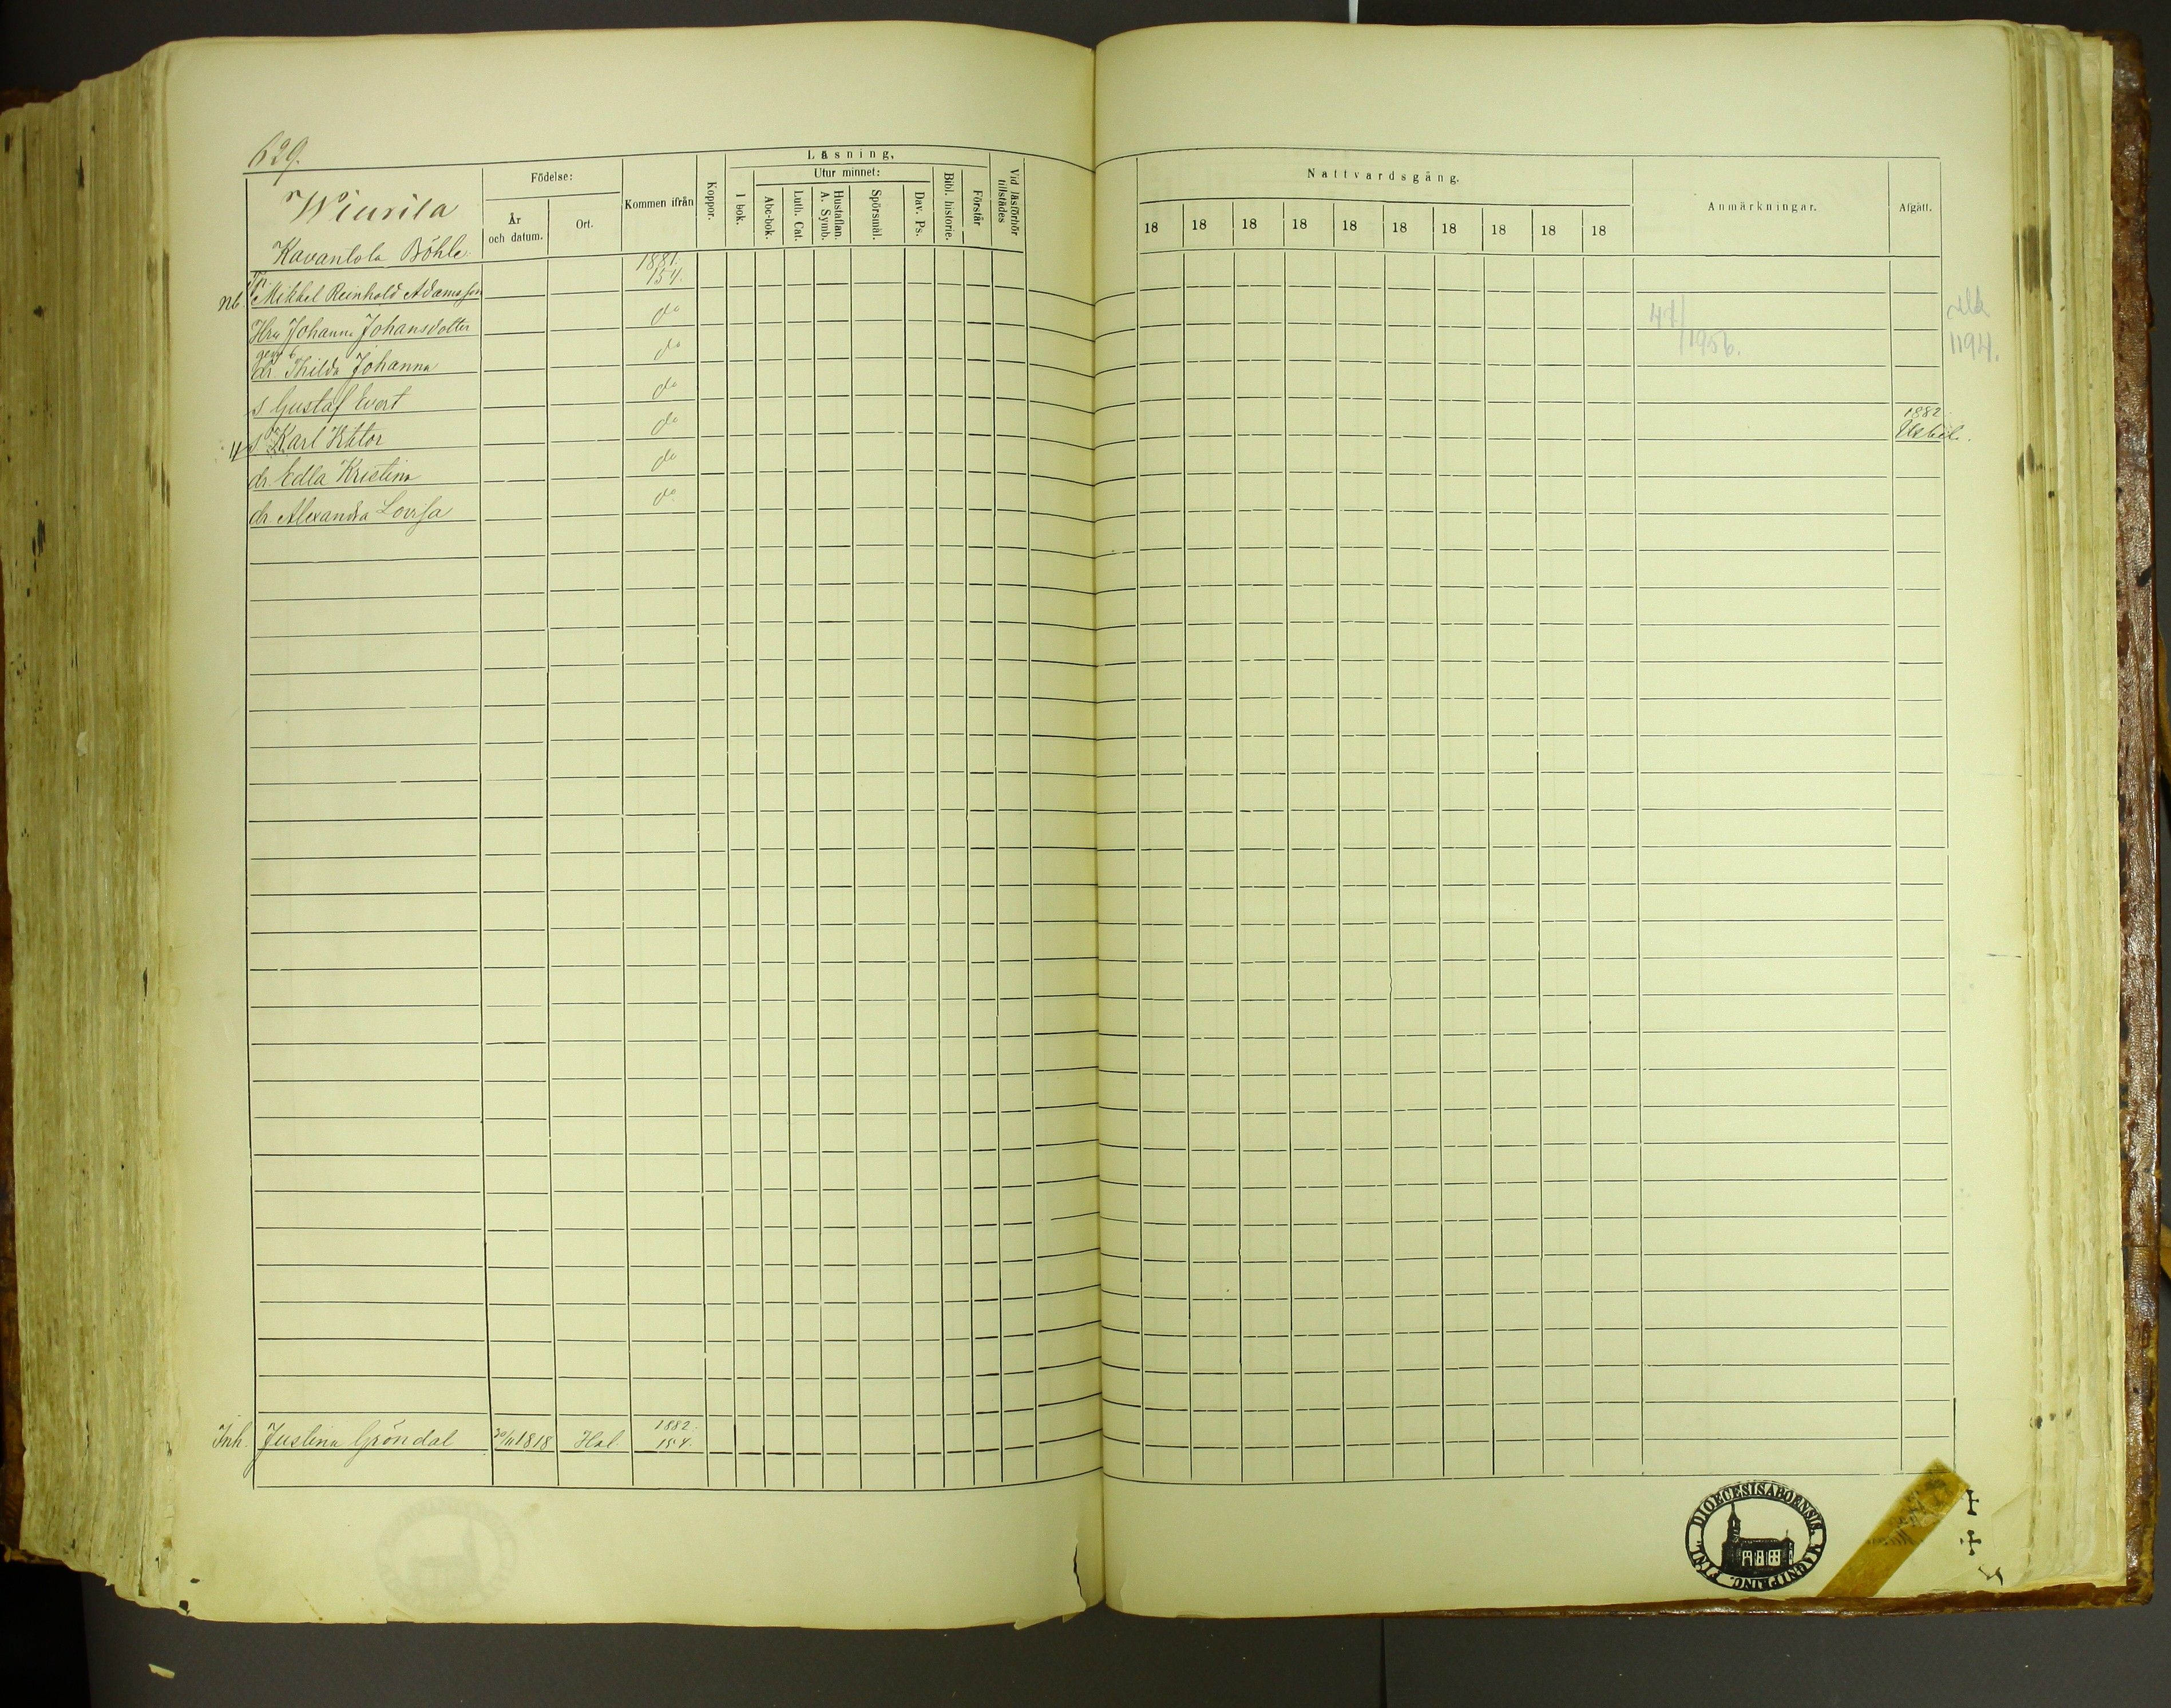 629.
Wiurila
Kavantola Böhle
Födelse:
År
och datum.
Ort.
Kommen ifrån
Koppor.
Läsning.
Utur minnet:
I bok.
Abc-bok.
Luth. Cat.
Hustaflan.
A. Symb.
Spörsmål.
Dav. Ps.
Bibl. historie.
Förstår
Vid läsförhör
tillstädes
Nattvardsgång.
18 18 18 18 18 18 18 18 18 18
Anmärkningar.
Afgått.
1881.
Nb. Mikkel Reinhold Adamsson 154.
Hru Johanna Johansdotter do
dr. Thilda Johanna do
47/1956.
1194.
s. Gustaf Evert do
s. Karl Viktor do
1882.
dr. Edla Kristina do
dr. Alexandra Lovisa do
1882.
Inh. Justina Gröndal 20/11 1818 Hal. 154.
DIOECESIS ABOENSIS. MAGNI PRINC. FINL.